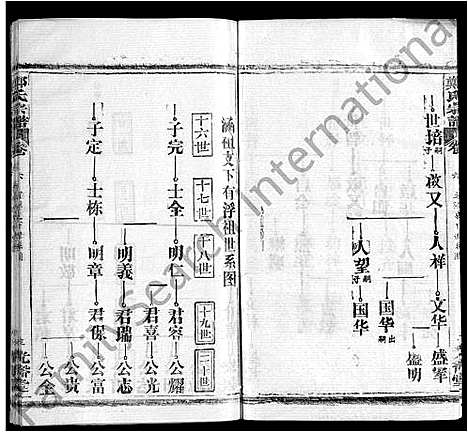 鄭氏宗譜
卷六
世培
嗣子
啟又
人祥
文华
盛军
盛明
人望
嗣子
国华
国华
出嗣
涵祖支下有浮祖世系图
十六世
十七世
十八世
十九世
二十世
子完
士全
明仁
君容
公耀
君喜
公光
明義
君瑞
公志
子定
士栋
明章
君保
公富
公贵
公全
鄭氏宗譜
卷
Family Search International